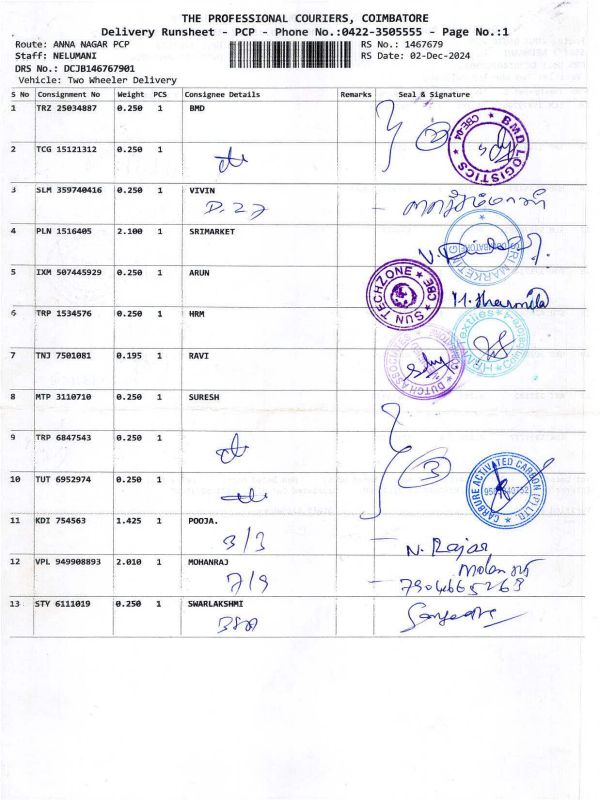 THE PROFESSIONAL COURIERS, COIMBATORE
Delivery Runsheet - PCP - Phone No.:0422-3505555 - Page No.:1
Route: ANNA NAGAR PCP RS No.: 1467679
Staff: NELUMANI RS Date: 02-Dec-2024
DRS No.: DCJB146767901
Vehicle: Two Wheeler Delivery
S No Consignment No Weight PCS Consignee Details Remarks Seal & Signature
1 TRZ 25034887 0.250 1 BMD
2
BMD LOGISTICS CBE-04
2 TCG 15121312 0.250 1
3 SLM 359740416 0.250 1 VIVIN
D.27
4 PLN 1516405 2.100 1 SRIMARKET
SRI MARKETING
5 IXM 507445929 0.250 1 ARUN
SUN TECHZONE CBE
M. Sharmila
6 TRP 1534576 0.250 1 HRM
Textiles Coimbatore-4
7 TNJ 7501081 0.195 1 RAVI
DUTCH ASSOCIATES
8 MTP 3110710 0.250 1 SURESH
9 TRP 6847543 0.250 1
3
CARBURE ACTIVATED CARBON (P) LTD.
10 TUT 6952974 0.250 1
11 KDI 754563 1.425 1 POOJA.
3/3 N. Rajar
12 VPL 949908893 2.010 1 MOHANRAJ
7/9 7904665263
13 STY 6111019 0.250 1 SWARLAKSHMI